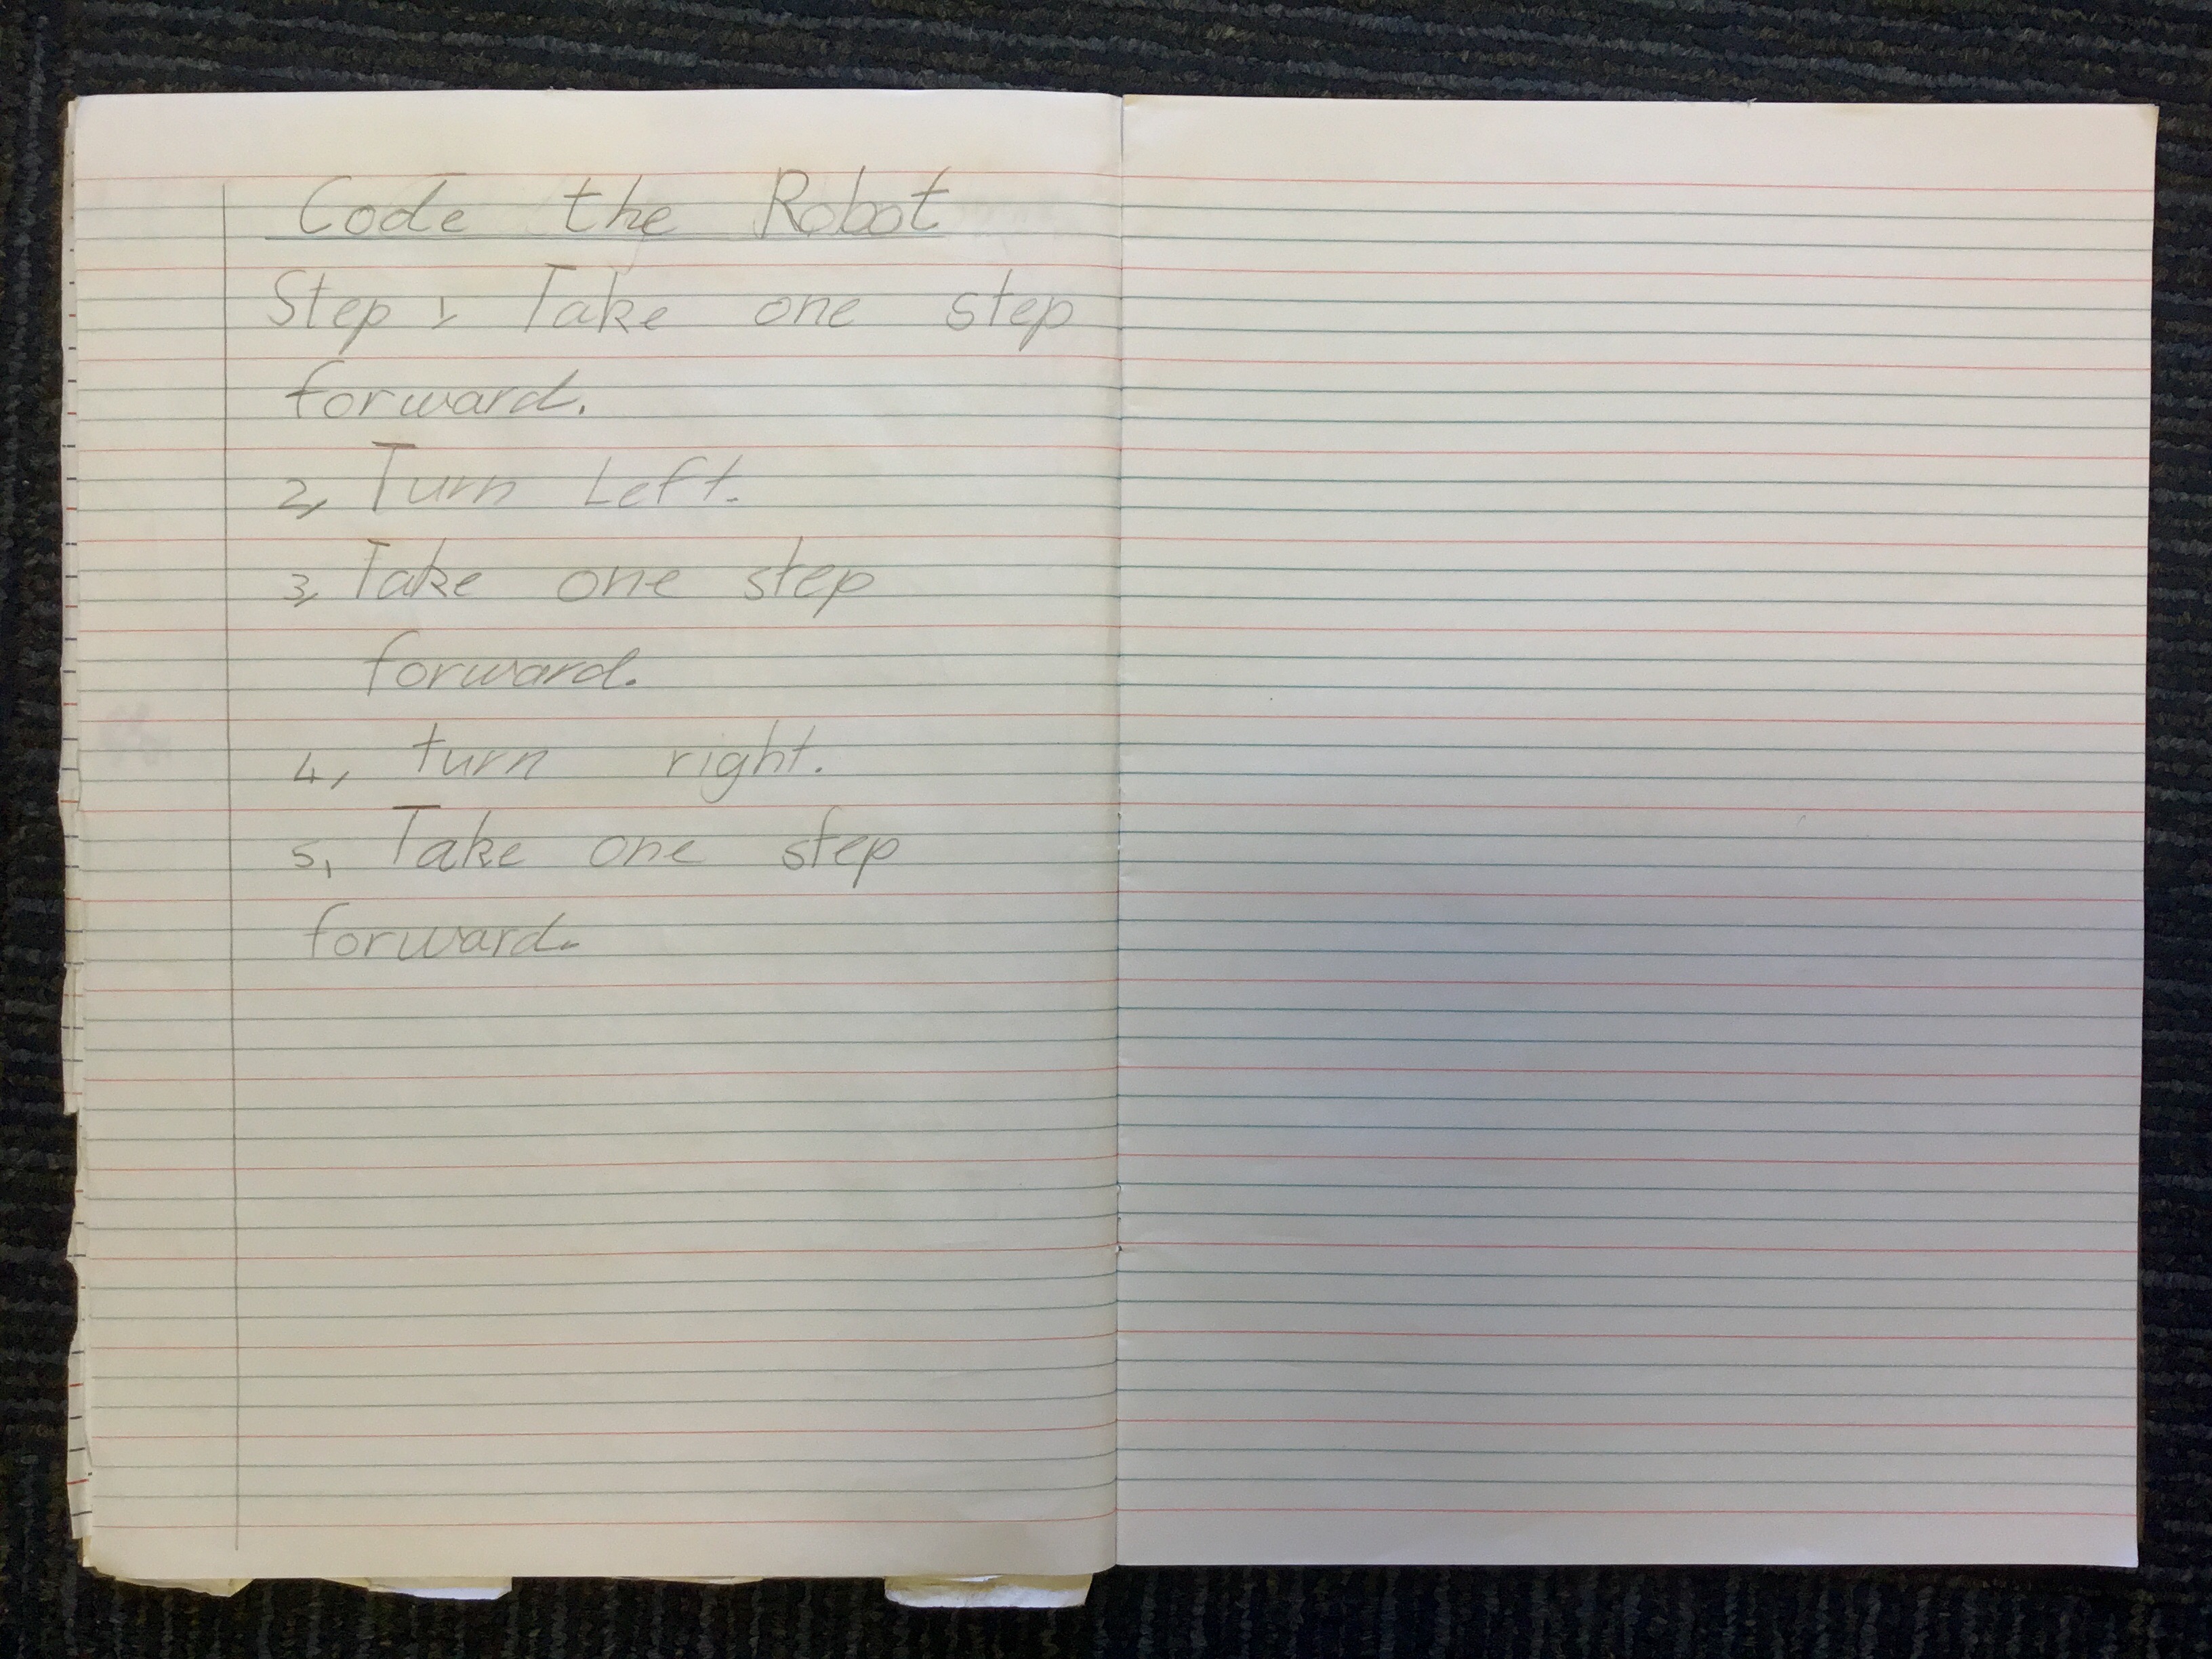 Code the Robot
Step 1, Take one step
forward.
2, Turn Left.
3, Take one step
forward.
4, turn right.
5, Take one step
forward.